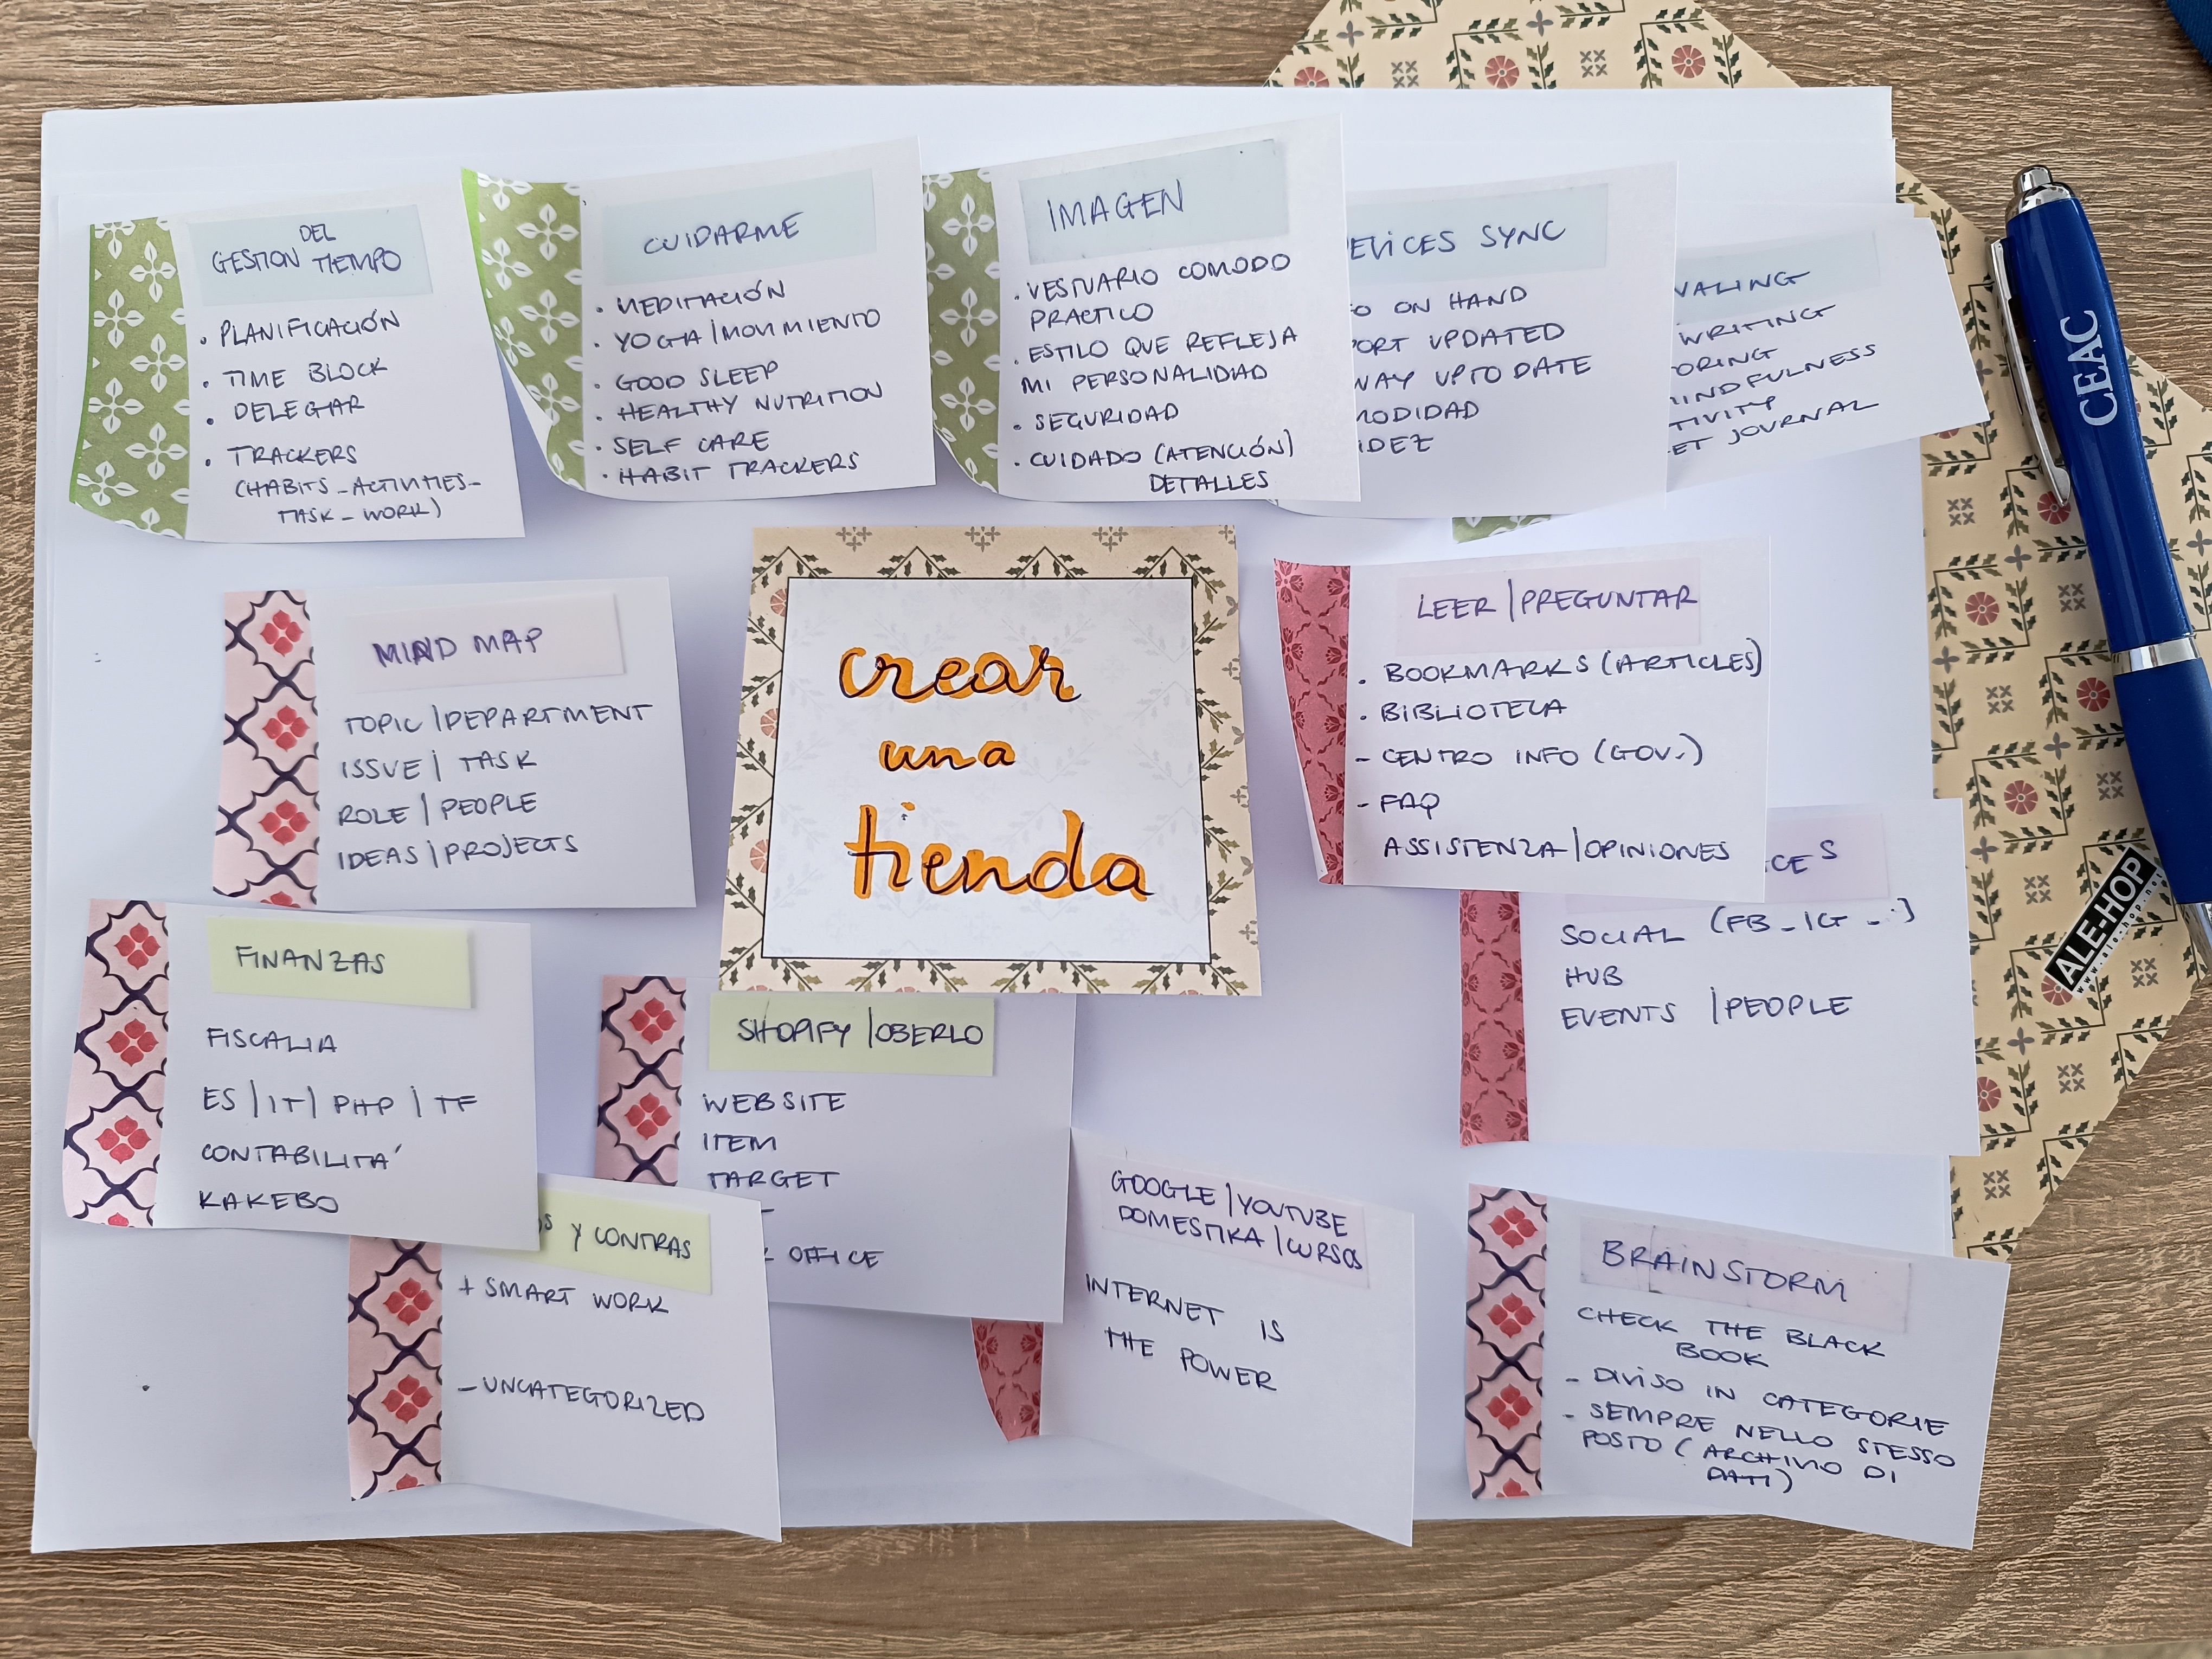 DEL
GESTION TIEMPO
• PLANIFICACIÓN
• TIME BLOCK
• DELEGAR
• TRACKERS
(HABITS_ACTIVITIES_
TASK_WORK)
CUIDARME
• MEDITACIÓN
• YOGA/MOVIMIENTO
• GOOD SLEEP
• HEALTHY NUTRITION
• SELF CARE
• HABIT TRACKERS
IMAGEN
• VESTUARIO COMODO
PRACTICO
• ESTILO QUE REFLEJA
MI PERSONALIDAD
• SEGURIDAD
• CUIDADO (ATENCIÓN)
DETALLES
EVICES SYNC
O ON HAND
PORT UPDATED
WAY UP TO DATE
MODIDAD
IDEZ
VALING
WRITING
ORING
MINDFULNESS
TIVITY
ET JOURNAL
MIND MAP
TOPIC/DEPARTMENT
ISSUE/TASK
ROLE/PEOPLE
IDEAS/PROJECTS
crear
una
tienda
LEER/PREGUNTAR
• BOOKMARKS (ARTICLES)
• BIBLIOTECA
- CENTRO INFO (GOV.)
- FAQ
ASSISTENZA/OPINIONES
CES
SOCIAL (FB_IG_..)
HUB
EVENTS /PEOPLE
FINANZAS
FISCALIA
ES/IT/PHP/TF
CONTABILITA'
KAKEBO
OS Y CONTRAS
+ SMART WORK
- UNCATEGORIZED
SHOPIFY/OBERLO
WEBSITE
ITEM
TARGET
OFFICE
GOOGLE/YOUTUBE
DOMESTIKA/CURSOS
INTERNET IS
THE POWER
BRAINSTORM
CHECK THE BLACK
BOOK
- DIVISO IN CATEGORIE
- SEMPRE NELLO STESSO
POSTO (ARCHIVIO DI
DATI)
CEAC
ALE-HOP
www.ale-hop.net